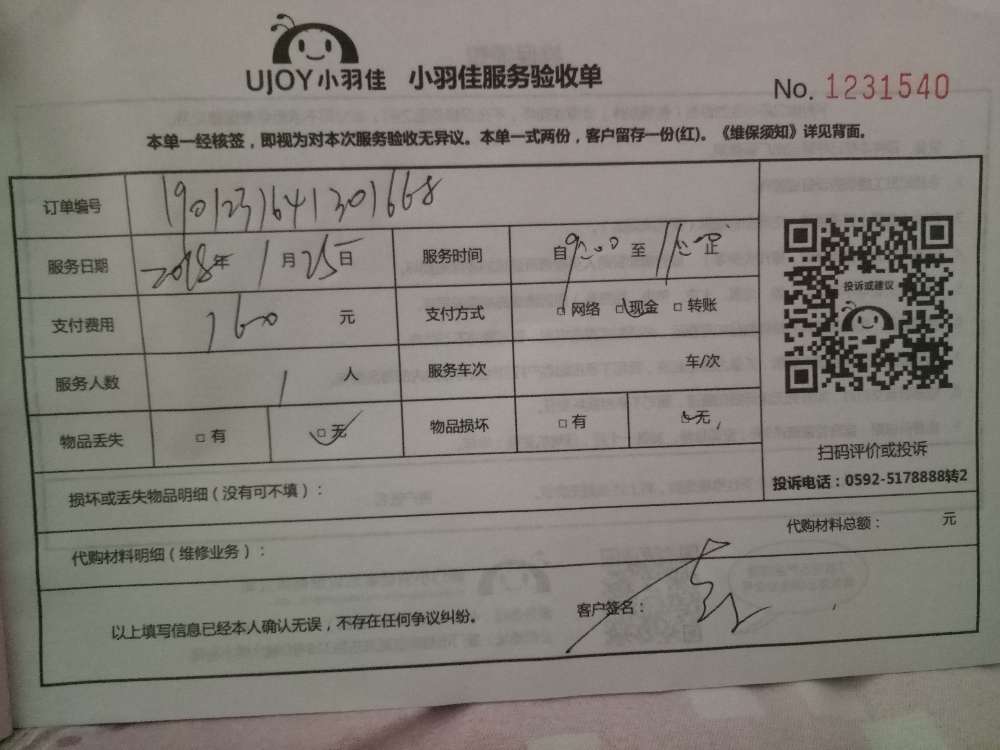 UJOY小羽佳 小羽佳服务验收单
No. 1231540
本单一经核签，即视为对本次服务验收无异议。本单一式两份，客户留存一份(红)。《维保须知》详见背面。
订单编号 1901231641301668
服务日期 2018年 1月25日 服务时间 自9:00至11:00止
支付费用 160 元 支付方式 □网络 □现金 □转账
投诉或建议
服务人数 1 人 服务车次 车/次
物品丢失 □有 □无 物品损坏 □有 □无
扫码评价或投诉
投诉电话：0592-5178888转2
损坏或丢失物品明细（没有可不填）：
代购材料总额： 元
代购材料明细（维修业务）：
以上填写信息已经本人确认无误，不存在任何争议纠纷。 客户签名：